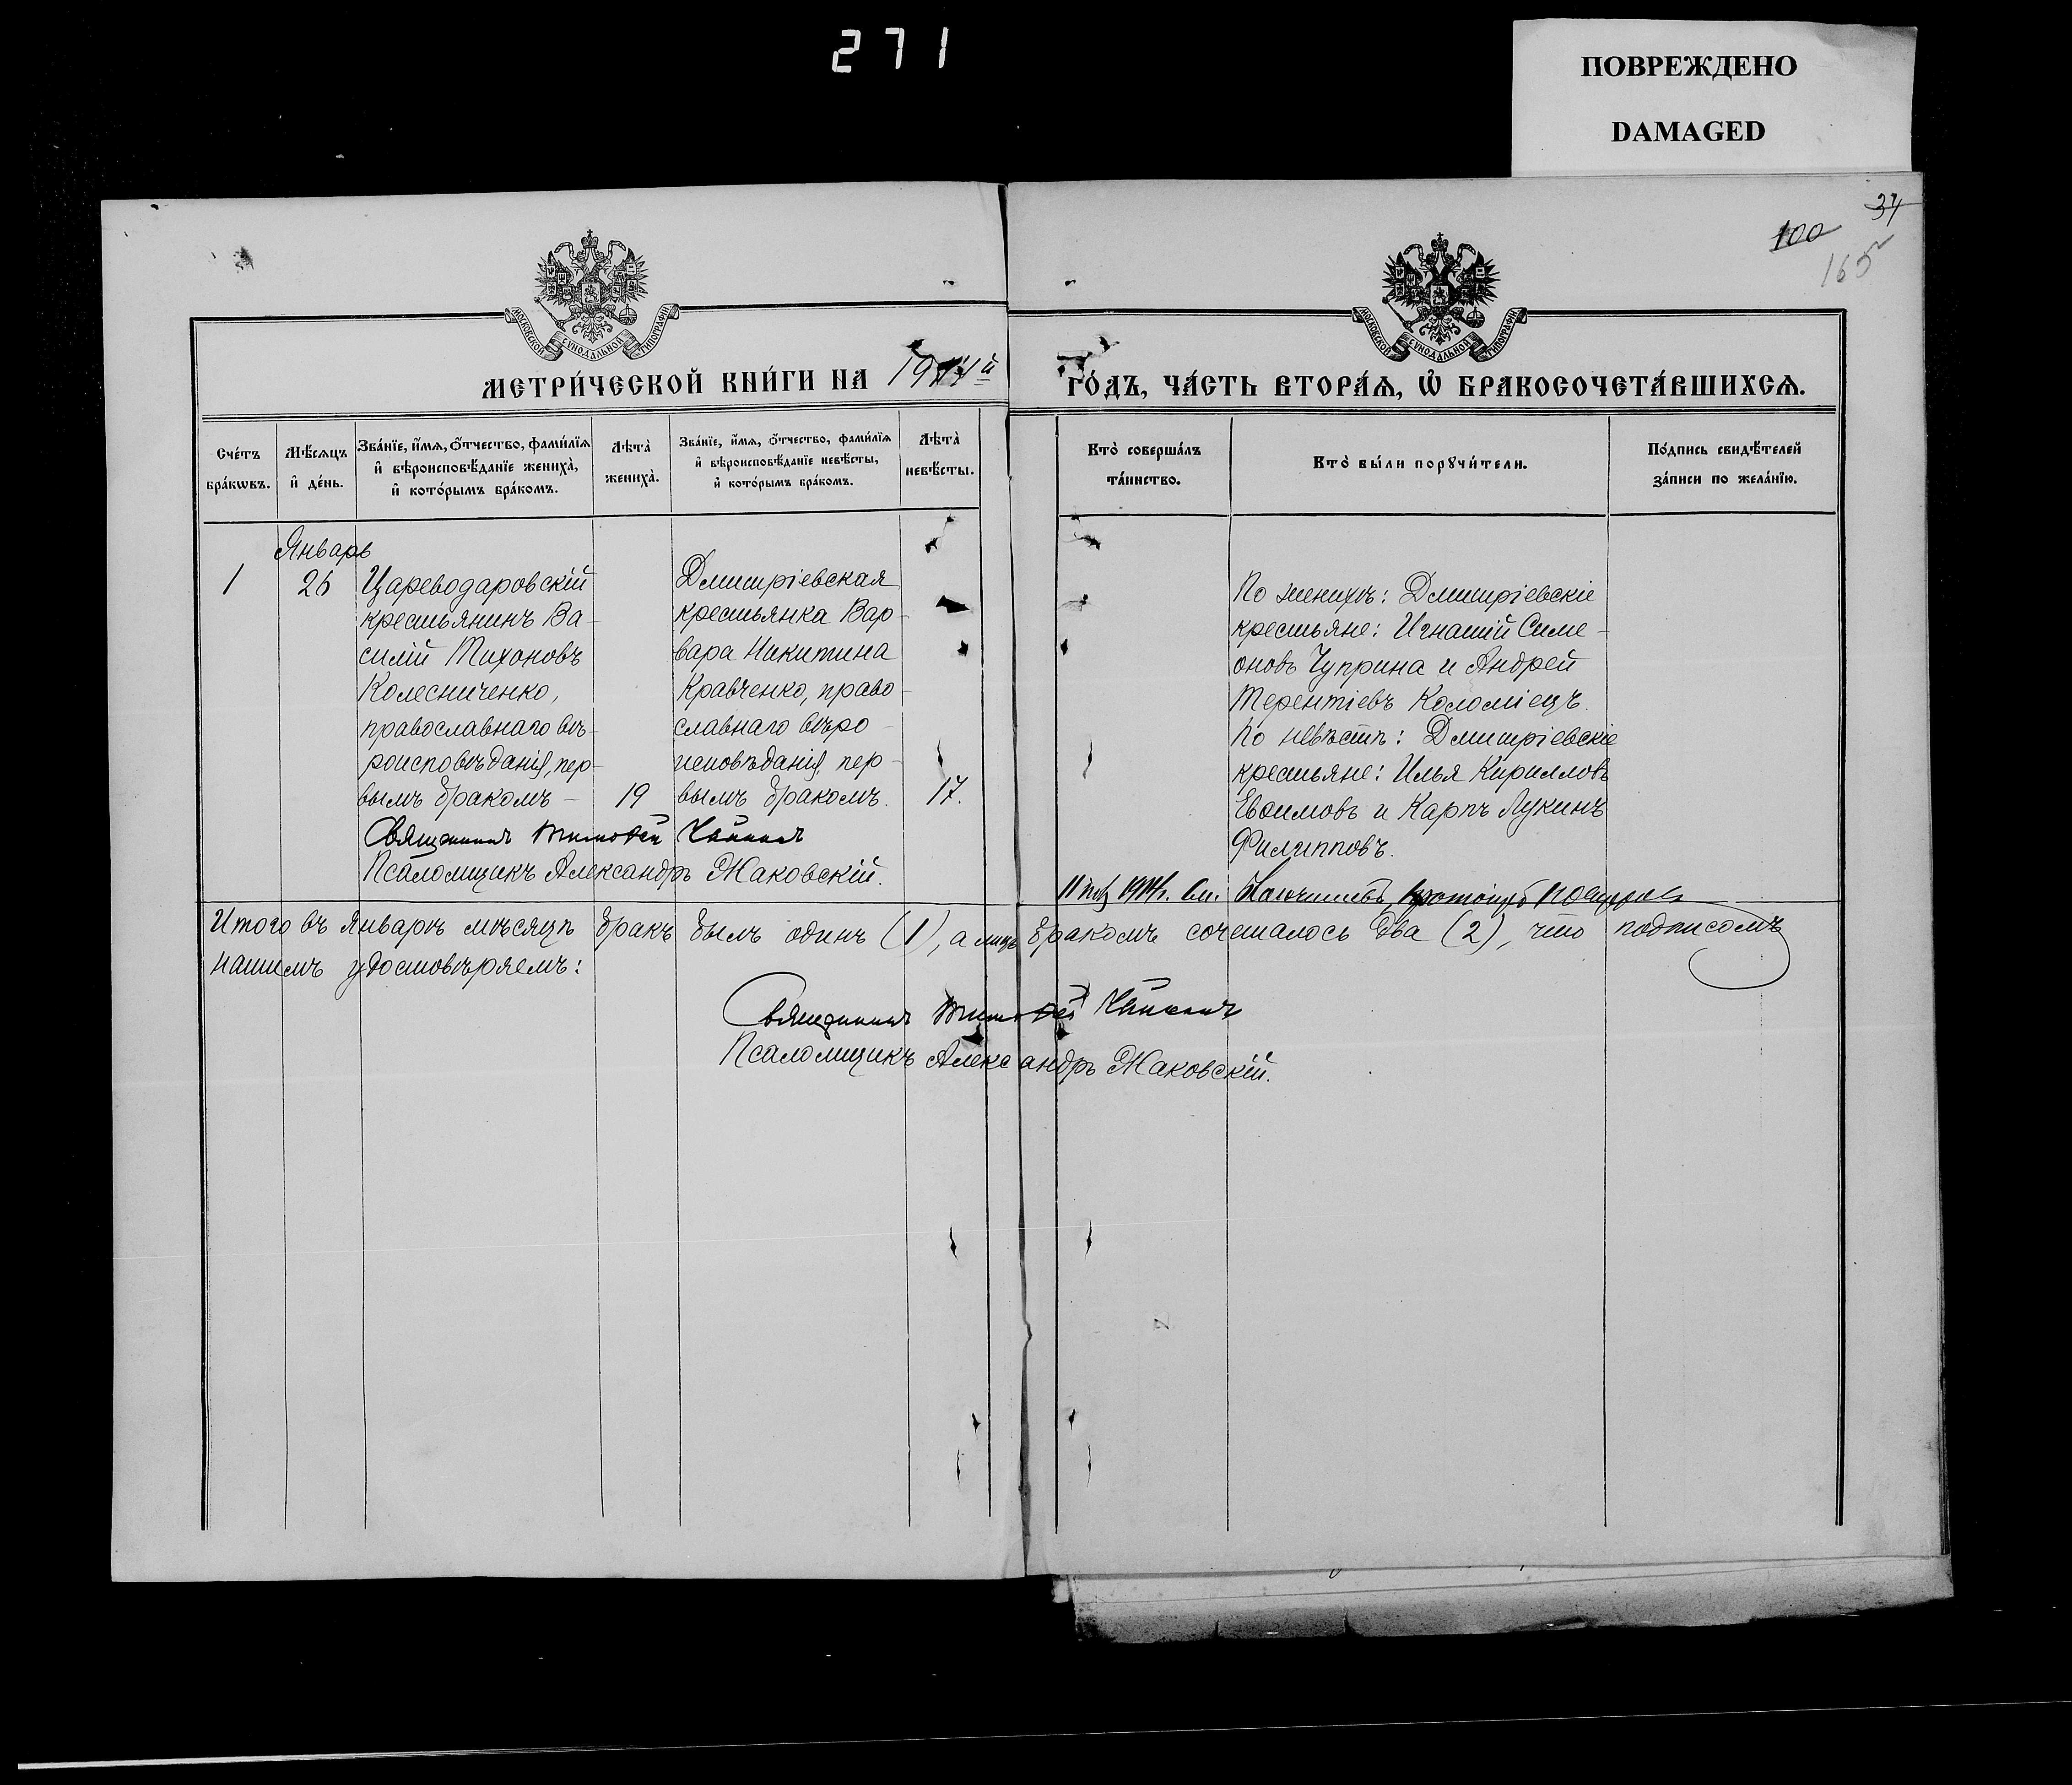 271
ПОВРЕЖДЕНО
DAMAGED
34
100
165
МОСКОВСКОЙ СУНОДАЛЬНОЙ ТИПОГРАФІИ
МОСКОВСКОЙ СУНОДАЛЬНОЙ ТИПОГРАФІИ
МЕТРИ́ЧЕСКОЙ КНИ́ГИ НА 1914й ГО́ДЪ, ЧА́СТЬ ВТОРА́Ѧ, Ѽ БРАКОСОЧЕТА́ВШИХСѦ.
Сче́тъ бра́кѡвъ.
Мѣ́сѧцъ и҆ де́нь.
Зва́нїе, и҆́мѧ, ѻ҆́тчество, фами́лїѧ и҆ вѣроисповѣ́данїе жениха̀, и҆ кото́рымъ бра́комъ.
Лѣта̀ жениха̀.
Зва́нїе, и҆́мѧ, ѻ҆́тчество, фами́лїѧ и҆ вѣроисповѣ́данїе невѣ́сты, и҆ кото́рымъ бра́комъ.
Лѣта̀ невѣ́сты.
Кто̀ соверша́лъ та́инство.
Кто̀ бы́ли порꙋчи́тели.
По́дпись свидѣ́телей за́писи по жела́нїю.
Январь
1
26
Цареводаровскій
крестьянинъ Ва-
силій Тихоновъ
Колесниченко,
православнаго вѣ-
роисповѣданія, пер-
вымъ бракомъ –
19
Дмитріевская
крестьянка Вар-
вара Никитина
Кравченко, право-
славнаго вѣро-
исповѣданія, пер-
вымъ бракомъ.
17.
По женихѣ: Дмитріевскіе
крестьяне: Игнатій Симе-
оновъ Чуприна и Андрей
Терентіевъ Коломіецъ.
По невѣстѣ: Дмитріевскіе
крестьяне: Илья Кирилловъ
Евѳимовъ и Карпъ Лукинъ
Филипповъ.
Священникъ Тимоѳей
Псаломщикъ Александръ Жаковскій.
11 1914г.
Итого въ Январѣ мѣсяцѣ бракъ былъ одинъ (1), а лицъ бракомъ сочеталось два (2), что подписомъ
нашимъ удостовѣряемъ:
Священникъ Тимоѳей
Псаломщикъ Александръ Жаковскій.